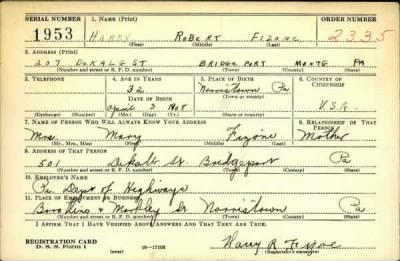 SERIAL NUMBER 1. NAME (Print) ORDER NUMBER
1953 HARRY ROBERT FIZONE 2335
(First) (Middle) (Last)
2. ADDRESS (Print)
207 DEKALB ST BRIDGEPORT MONTG PA
(Number and street or R. F. D. number) (Town) (County) (State)
3. TELEPHONE 4. AGE IN YEARS 5. PLACE OF BIRTH 6. COUNTRY OF CITIZENSHIP
32 Norristown Pa
DATE OF BIRTH (Town or county)
April 3 1908 U.S.A.
(Exchange) (Number) (Mo.) (Day) (Yr.) (State or country)
7. NAME OF PERSON WHO WILL ALWAYS KNOW YOUR ADDRESS 8. RELATIONSHIP OF THAT PERSON
Mrs. Mary Fizone Mother
(Mr., Mrs., Miss) (First) (Middle) (Last)
9. ADDRESS OF THAT PERSON
501 Dekalb St. Bridgeport Pa
(Number and street or R. F. D. number) (Town) (County) (State)
10. EMPLOYER'S NAME
Pa Dept of Highways
11. PLACE OF EMPLOYMENT OR BUSINESS
& St Norristown Pa
(Number and street or R. F. D. number) (Town) (County) (State)
I AFFIRM THAT I HAVE VERIFIED ABOVE ANSWERS AND THAT THEY ARE TRUE.
REGISTRATION CARD
D. S. S. Form 1 (over) 16-17105 Harry R Fizone
(Registrant's signature)